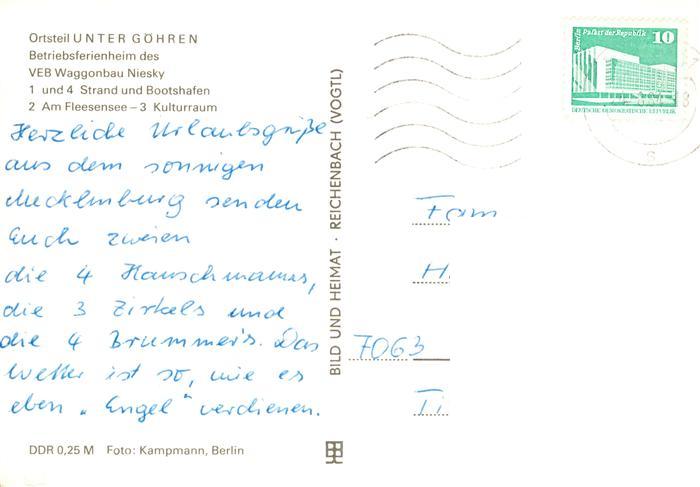 Ortsteil UNTER GÖHREN
Betriebsferienheim des
VEB Waggonbau Niesky
1 und 4 Strand und Bootshafen
2 Am Fleesensee – 3 Kulturraum
Herzliche Urlaubsgrüße
aus dem sonnigen
Mecklenburg senden
Euch zweien
die 4 Hauschmanns,
die 3 Zirkels und
die 4 Brummer's. Das
Wetter ist so, wie es
eben „Engel" verdienen.
DDR 0,25 M Foto: Kampmann, Berlin
BILD UND HEIMAT · REICHENBACH (VOGTL)
Berlin Palast der Republik 10
DEUTSCHE DEMOKRATISCHE REPUBLIK
Fam
H.
7063
Ti